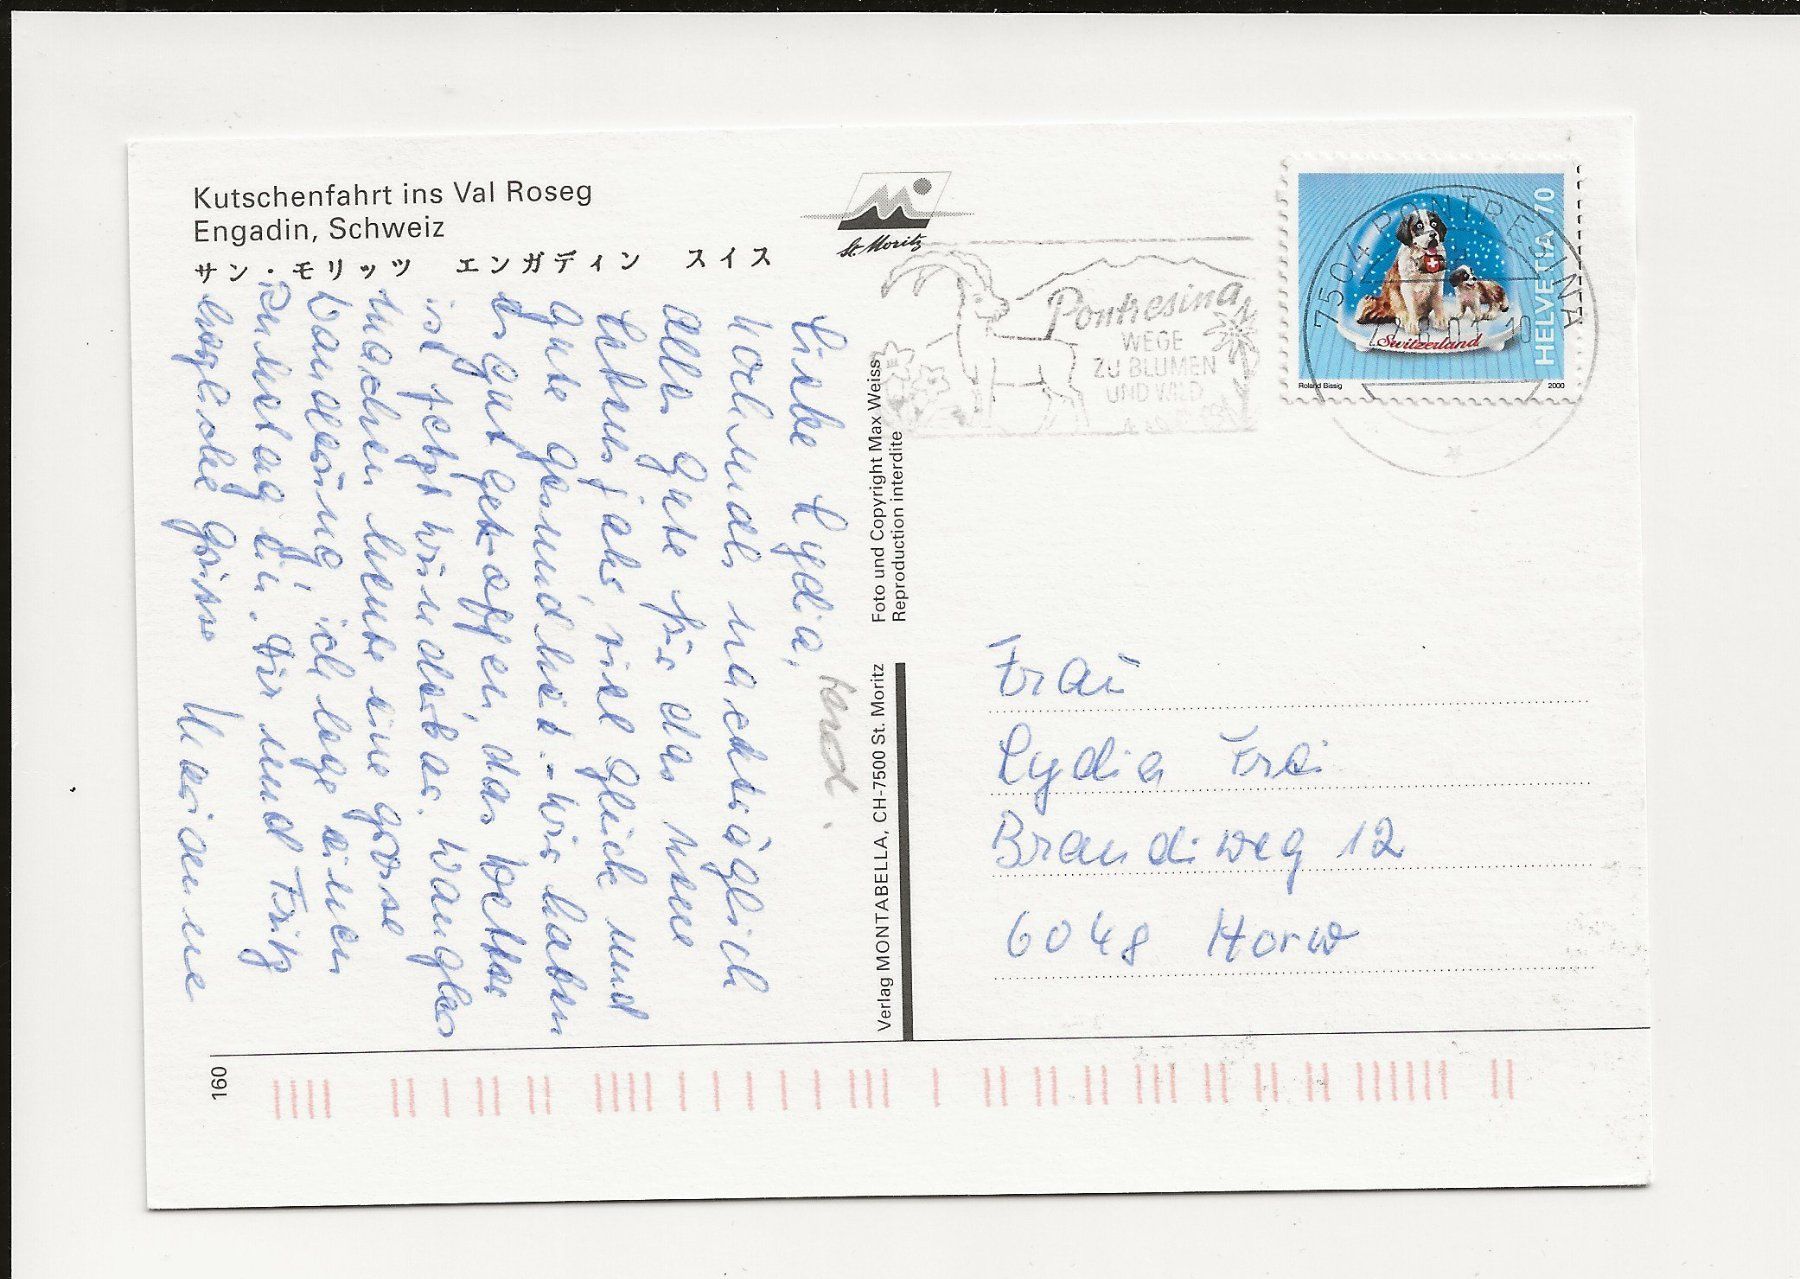 Kutschenfahrt ins Val Roseg
Engadin, Schweiz
サン・モリッツ エンガディン スイス
St. Moritz
Pontresina
WEGE
ZU BLUMEN
UND WILD
7504 PONTRESINA
HELVETIA 70
Switzerland
Roland Bissig
2000
Liebe Lydia,
nochmals nachträglich
alles gute für das neue
Lebensjahr, viel Glück und
gute Gesundheit - wir haben
es gut getroffen, das Wetter
ist jetzt wunderbar.
machen heute eine grosse
Wanderung, ich lege einen
Ruhetag ein. Dir und Fritz
herzliche Grüsse Marianne
Foto und Copyright Max Weiss
Reproduction interdite
Verlag MONTABELLA, CH-7500 St. Moritz
Frau
Lydia Frei
Brändiweg 12
6048 Horw
160